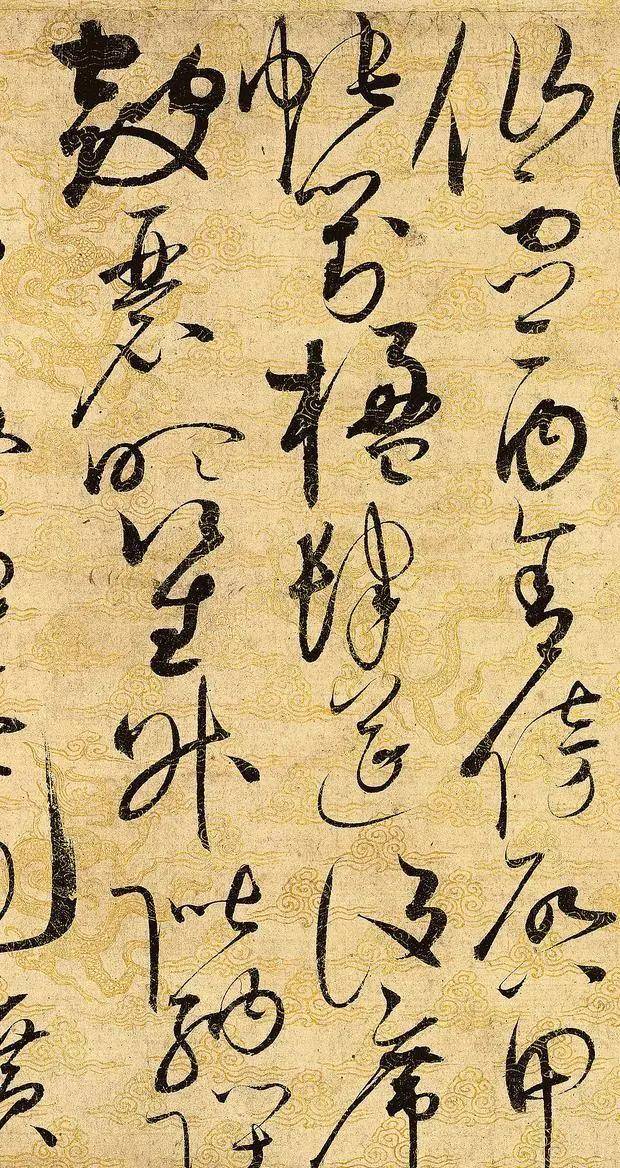 仙靈丙舍傍啓甲
帳對楹肆筵設席
鼓瑟吹笙升階納陛
廣